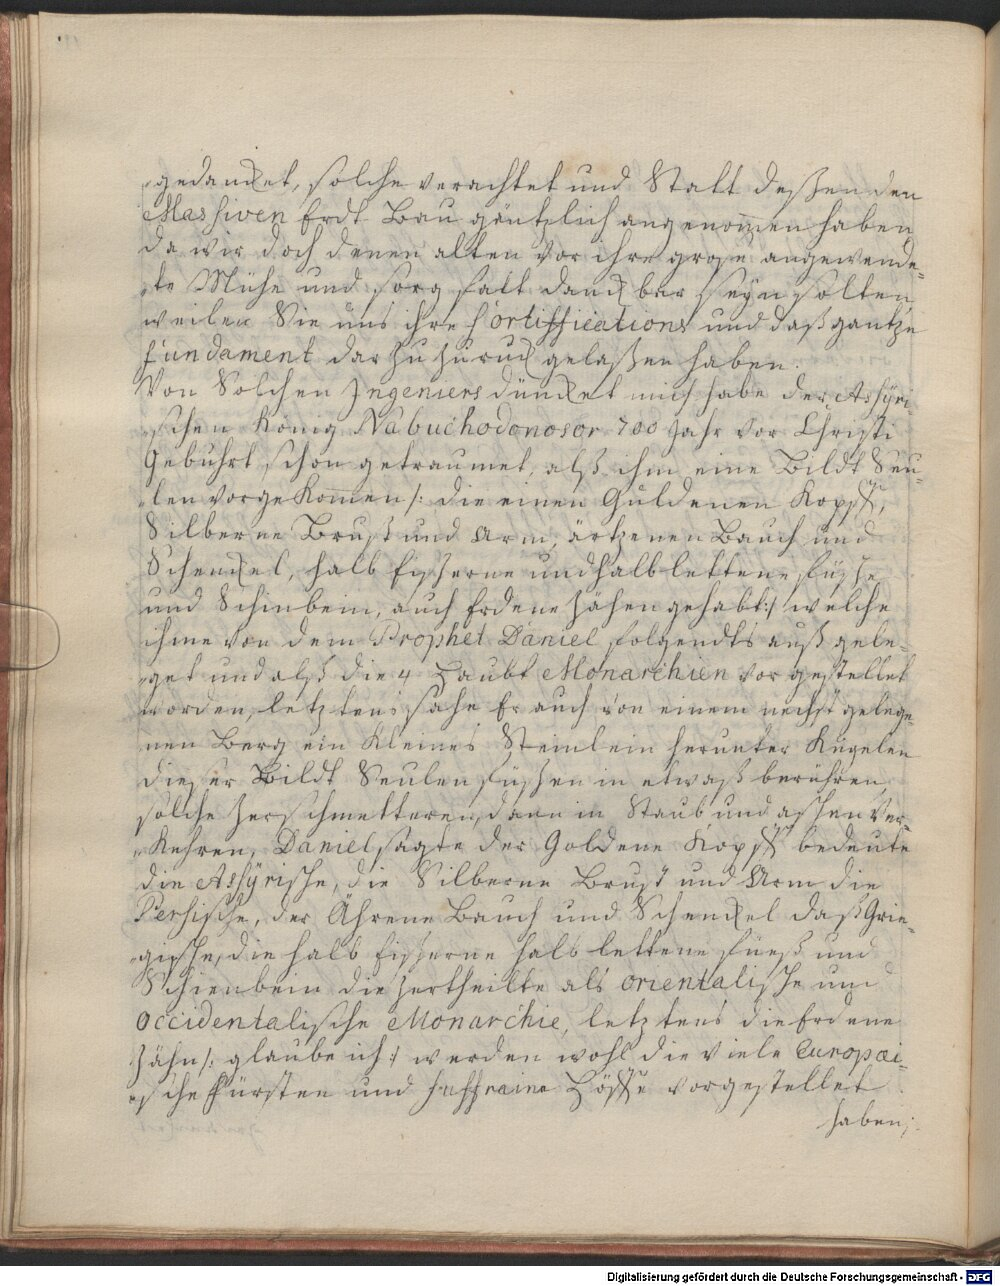 gedancket, solche verachtet und Statt deßen den
Massiven Erdt Bau gäntzlich angenom̄en haben
da wir doch denen alten vor ihre große angewende-
te Mühe und sorgfalt danckbar seyn solten,
weilen Sie uns ihre Fortiffications und daß gantze
Fundament darzu zuruck gelaßen haben.
Von Solchen Ingeniers düncket mich habe der Assÿri-
schen König Nabuchodonosor 700 Jahr vor Christi
Gebuhrt schon getraumet, alß ihm eine Bildt Seu-
len vorgekom̄en /: die einen Guldenen Kopff,
Silberne Brust und Arm, ärtzenen Bauch und
Schenckel, halb Eißerne und halb lettene füsse
und Schinbein, auch Erdene Zähen gehabt :/ welche
ihme von dem Prophet Daniel folgendts auß gele-
get und alß die 4 Haubt Monarchien vorgestellet
worden, letztens sahe Er auch von einem nechst gelege-
nen Berg ein Kleines Steinlein herunter Kugelen
dießer Bildt Seulen füßen in etwaß berühren,
solche zerschmetteren, dann in Staub und aschen ver-
Kehren, Daniel sagte der Goldene Kopff bedeute
die Assÿrische, die Silberne Brust und Arm die
Persische, der Ährene Bauch und Schenckel daß Grie-
gische, die halb Eißerne halb lettene füeß und
Schienbein die zertheilte als orientalische und
occidentalische Monarchie, letztens die Erdene
Zähn /: glaube ich :/ werden wohl die viele Europai-
sche Fürsten und suffraine Höffe vorgestellet
haben;
Digitalisierung gefördert durch die Deutsche Forschungsgemeinschaft - DFG